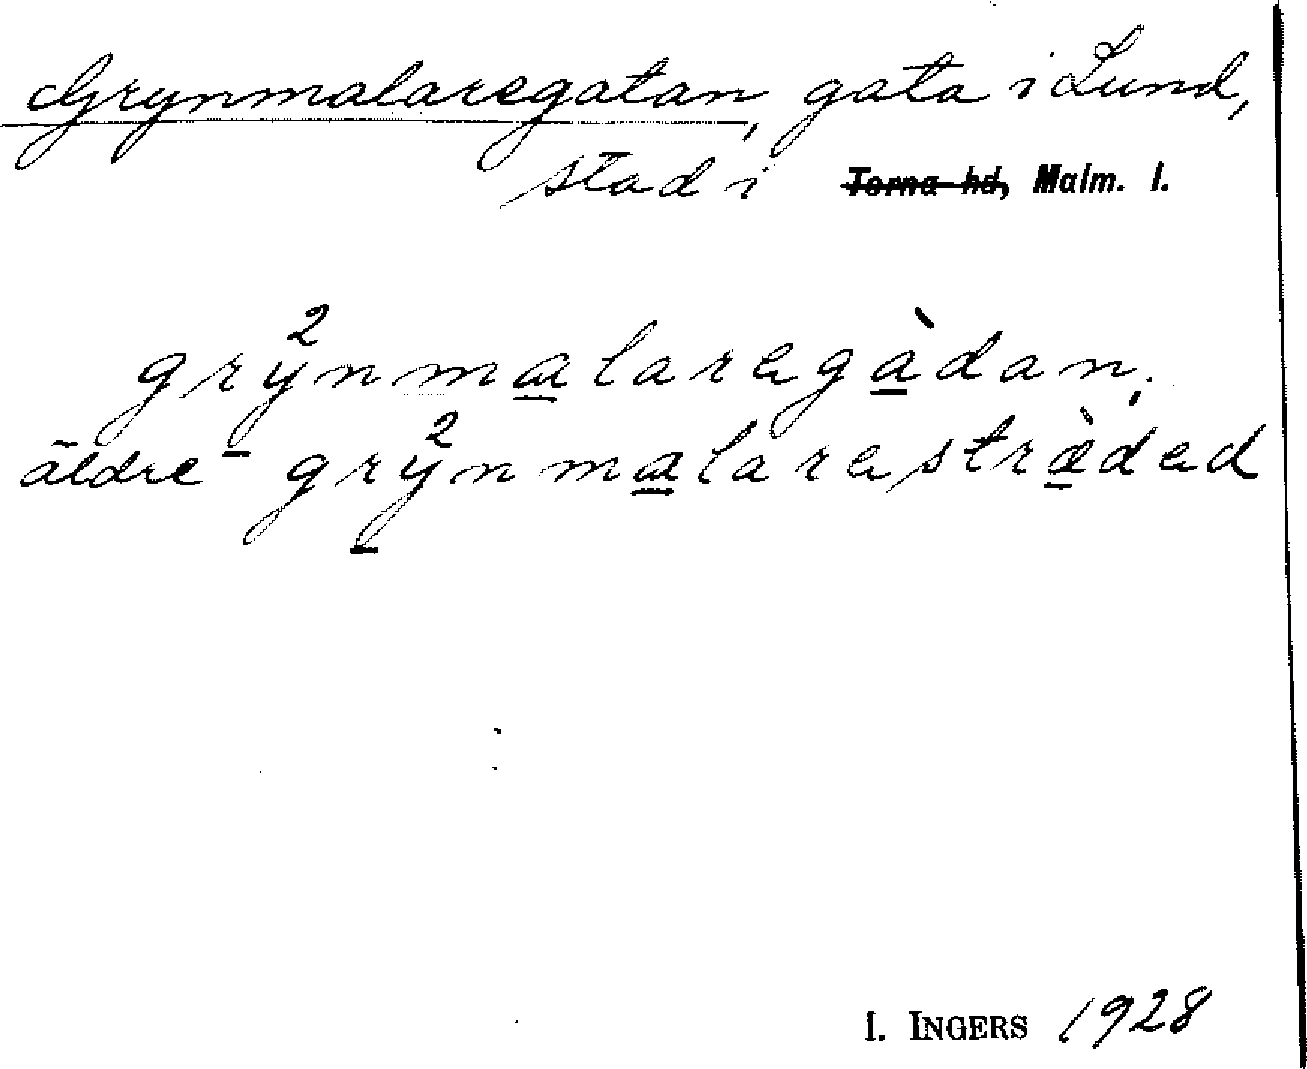 Grynmalaregatan, gata i Lund,
stad i Torna hd, Malm. l.
grý²nmalaregàdan,
äldre grý²nmalarestrædəd
I. INGERS 1928